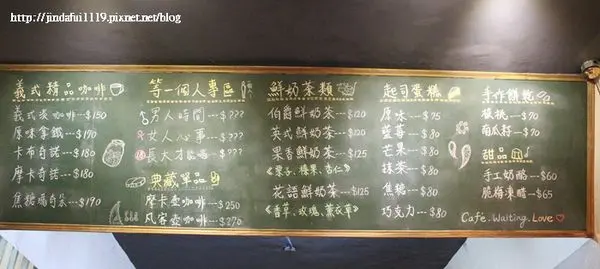 http://jindafui1119.pixnet.net/blog
義式精品咖啡
義式淡咖啡---$150
原味拿鐵---$170
卡布奇諾---$180
摩卡奇諾---$180
焦糖瑪奇朵---$190
等一個人專區
男人時間---$???
女人心事---$???
18 長大才能喝---$???
典藏單品
摩卡壺咖啡---$250
風客壺咖啡---$270
鮮奶茶類
伯爵鮮奶茶---$120
英式鮮奶茶---$120
果香鮮奶茶---$125
《栗子、榛果、杏仁》
花語鮮奶茶---$125
《香草、玫瑰、薰衣草》
起司蛋糕
原味---$75
藍莓---$80
芒果---$80
抹茶---$80
焦糖---$80
巧克力---$80
手作餅乾
核桃---$70
南瓜籽---$70
甜品
手工奶酪---$60
脆嶺凍醋---$65
Café.Waiting.Love